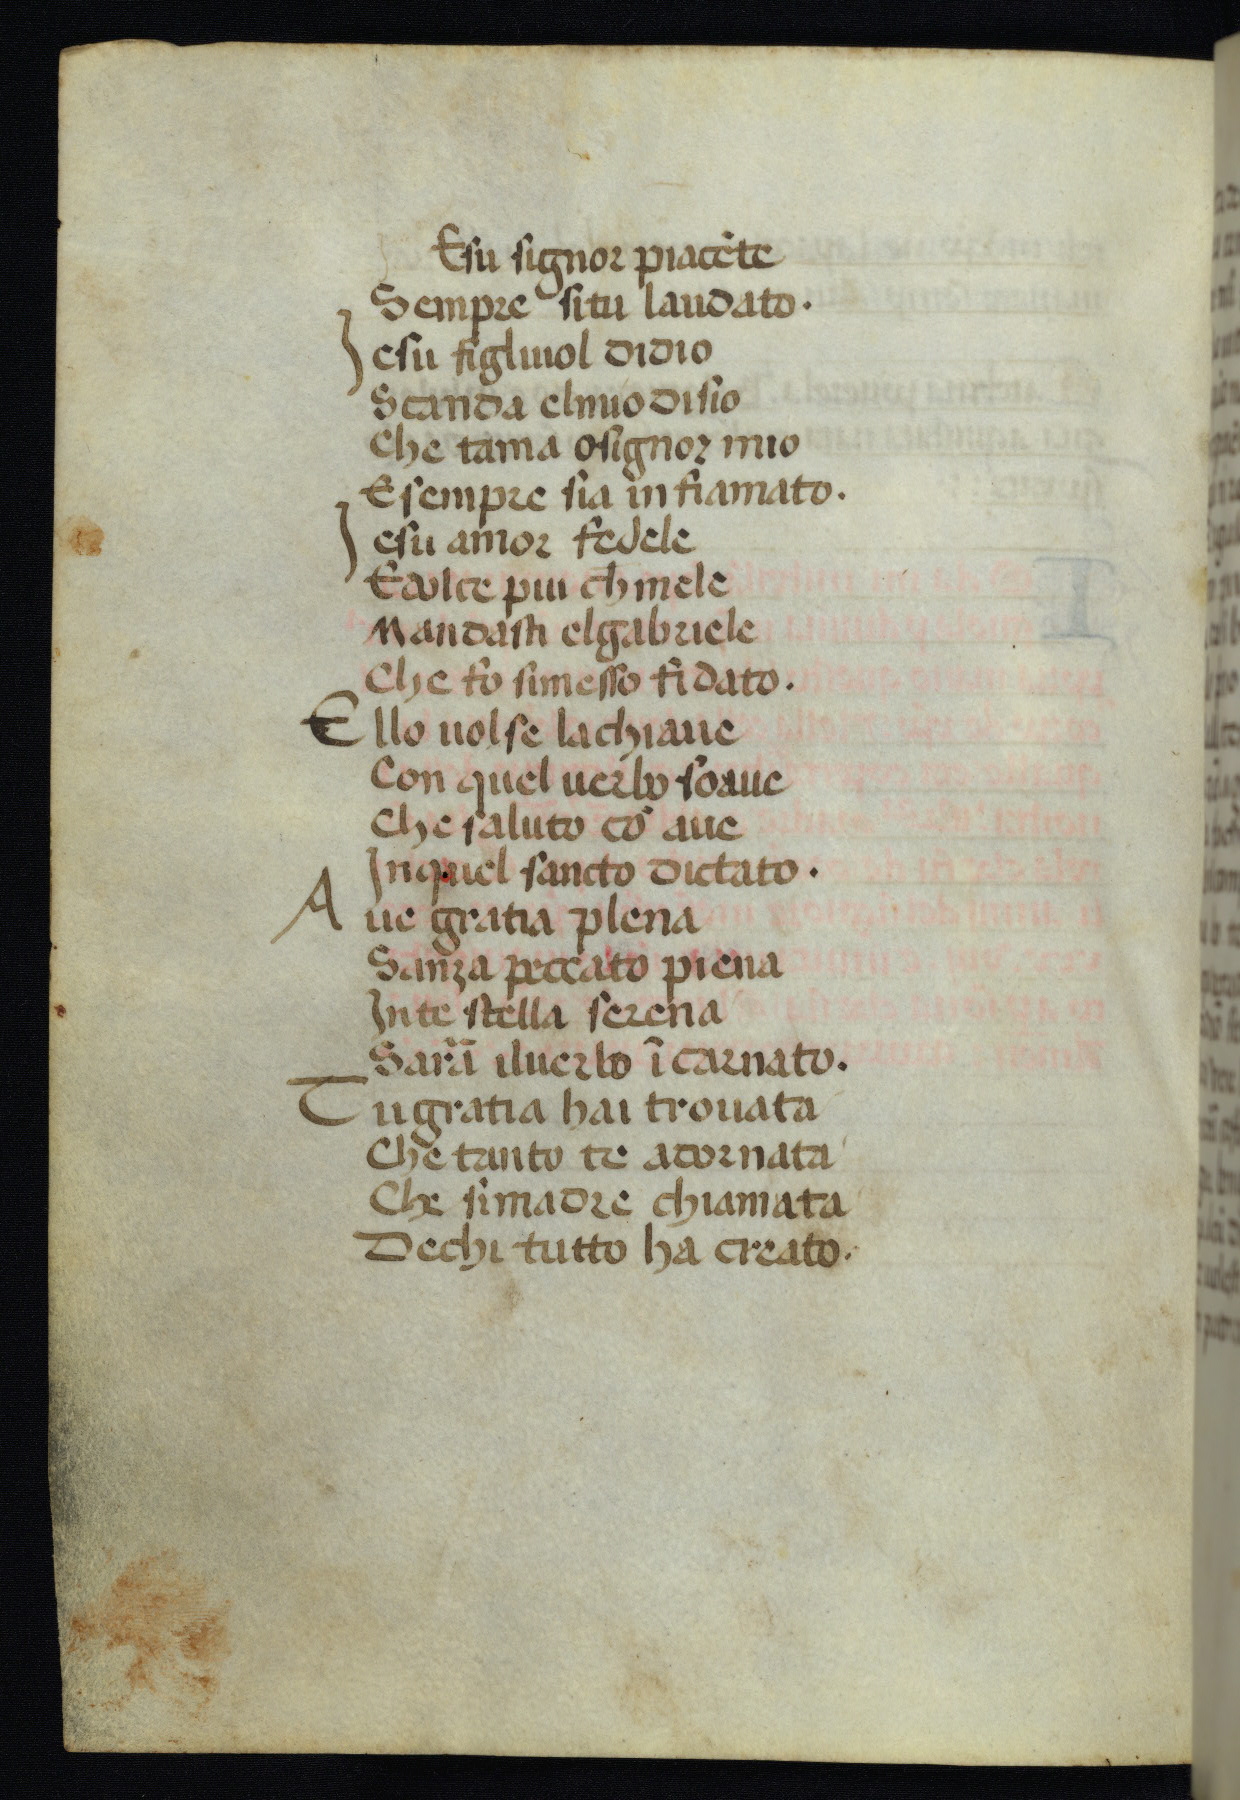 Esu signor piacēte
Sempre situ laudato.
Jesu figliuol didio
Scanda elmio disio
Che tama osignor mio
E sempre sia in fiamato.
Jesu amor fedele
E dolce piu ch mele
Mandasti elgabriele
Che fo simesso fidato.
Ello uolse lachiaue
Con quel uerbo soaue
Che saluto cō aue
Inquel sancto dictato.
Aue gratia plena
Sanza peccato piena
Inte stella serena
Sarā iluerbo īcarnato.
Tu gratia hai trouata
Che tanto te adornata
Che simadre chiamata
Dechi tutto ha creato.